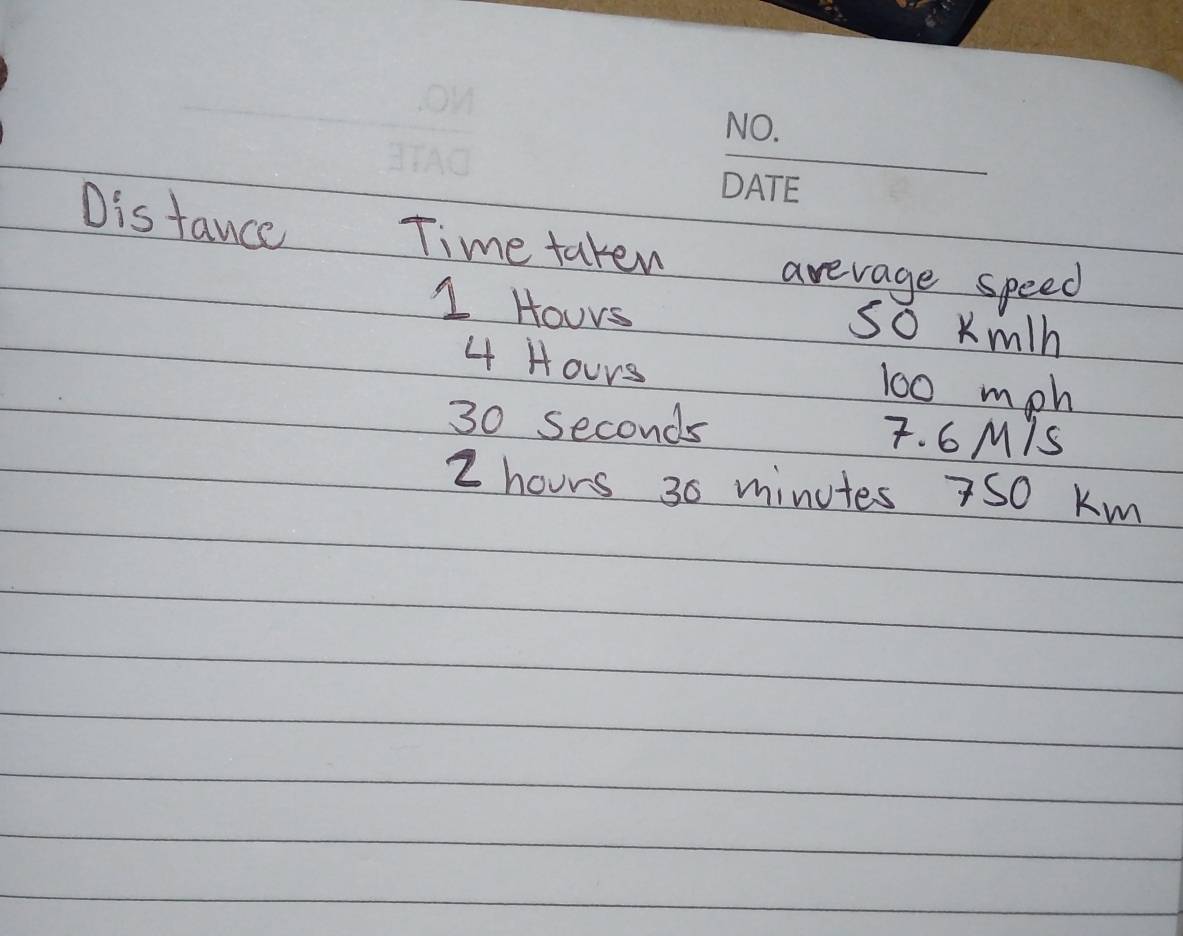 NO.
DATE
Distance Time taken average speed
1 Hours 50 Km/h
4 Hours 100 mph
30 seconds 7.6 M/s
2 hours 30 minutes 750 Km